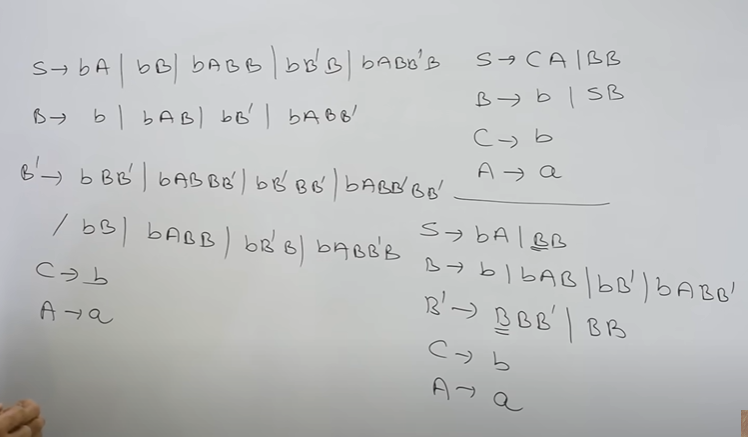 S → bA | bB | bABB | bB'B | bABB'B
B → b | bAB | bB' | bABB'
B' → bBB' | bABBB' | bB'BB' | bABB'BB'
/ bB | bABB | bB'B | bABB'B
C → b
A → a
S → CA | BB
B → b | SB
C → b
A → a
S → bA | BB
B → b | bAB | bB' | bABB'
B' → BBB' | BB
C → b
A → a